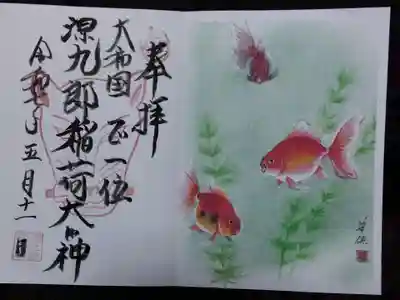 奉拝
大和国 正一位
源九郎稲荷大明神
五月十一